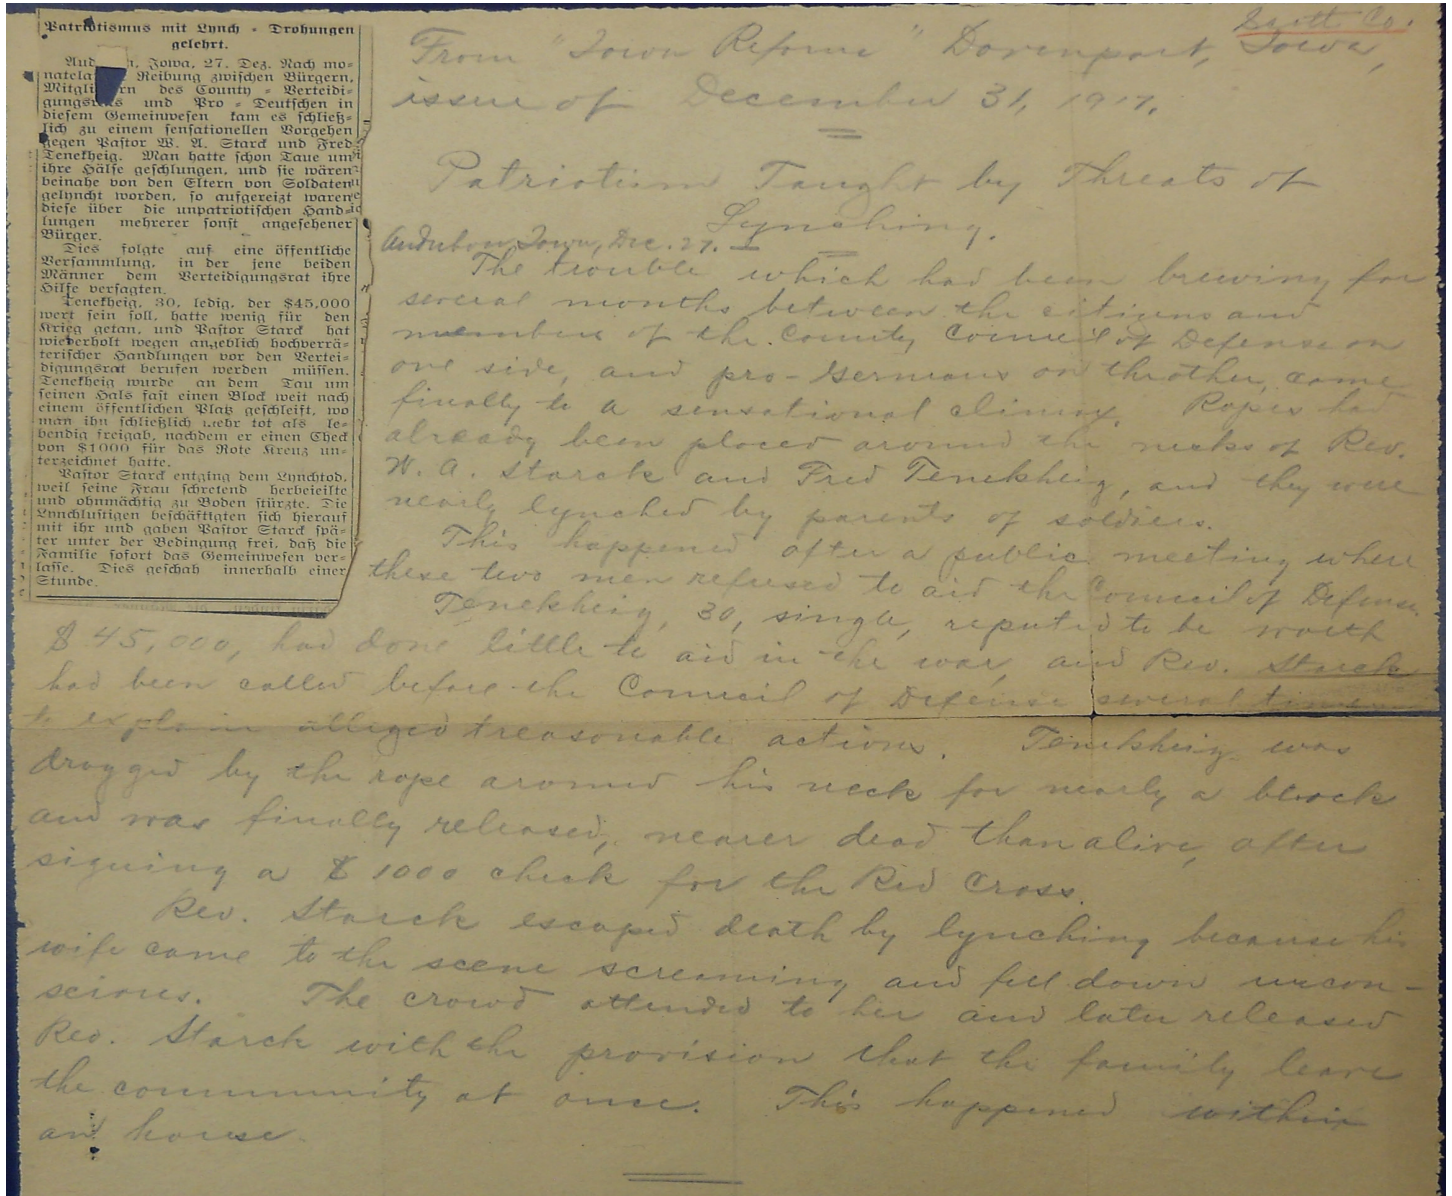 Patriotismus mit Lynch - Drohungen
gelehrt.
Aud n, Jowa, 27. Dez. Nach mo-
natela Reibung zwischen Bürgern,
Mitgli rn des County - Verteidi-
gungsrats und Pro - Deutschen in
diesem Gemeinwesen kam es schließ-
lich zu einem sensationellen Vorgehen
gegen Pastor W. A. Starck und Fred
Tenekheig. Man hatte schon Taue um
ihre Hälse geschlungen, und sie wären
beinahe von den Eltern von Soldaten
gelyncht worden, so aufgereizt waren
diese über die unpatriotischen Hand-
lungen mehrerer sonst angesehener
Bürger.
Dies folgte auf eine öffentliche
Versammlung, in der jene beiden
Männer dem Verteidigungsrat ihre
Hilfe versagten.
Tenekheig, 30, ledig, der $45,000
wert sein soll, hatte wenig für den
Krieg getan, und Pastor Starck hat
wiederholt wegen angeblich hochverrä-
terischer Handlungen vor den Vertei-
digungsrat berufen werden müssen.
Tenekheig wurde an dem Tau um
seinen Hals fast einen Block weit nach
einem öffentlichen Platz geschleift, wo
man ihn schließlich mehr tot als le-
bendig freigab, nachdem er einen Check
von $1000 für das Rote Kreuz un-
terzeichnet hatte.
Pastor Starck entging dem Lynchtod,
weil seine Frau schreiend herbeieilte
und ohnmächtig zu Boden stürzte. Die
Lynchlustigen beschäftigten sich hierauf
mit ihr und gaben Pastor Starck spä-
ter unter der Bedingung frei, daß die
Familie sofort das Gemeinwesen ver-
lasse. Dies geschah innerhalb einer
Stunde.
Scott Co.
From "Iowa Reform" Davenport, Iowa,
issue of December 31, 1917.
Patriotism Taught by Threats of
Lynching.
Audubon, Iowa, Dec. 27.
The trouble which had been brewing for
several months between the citizens and
members of the County Council of Defense on
one side, and pro-Germans on the other, came
finally to a sensational climax. Ropes had
already been placed around the necks of Rev.
W. A. Starck and Fred Tenekheig, and they were
nearly lynched by parents of soldiers.
This happened after a public meeting where
these two men refused to aid the Council of Defense.
Tenekheig, 30, single, reputed to be worth
$45,000, had done little to aid in the war, and Rev. Starck
had been called before the Council of Defense several times
to explain alleged treasonable actions. Tenekheig was
dragged by the rope around his neck for nearly a block
and was finally released, nearer dead than alive, after
signing a $1000 check for the Red Cross.
Rev. Starck escaped death by lynching because his
wife came to the scene screaming and fell down uncon-
scious. The crowd attended to her and later released
Rev. Starck with the provision that the family leave
the community at once. This happened within
an hour.